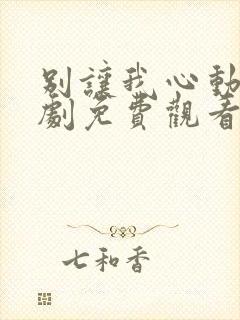 別讓我心動
劇免費觀看
七和香